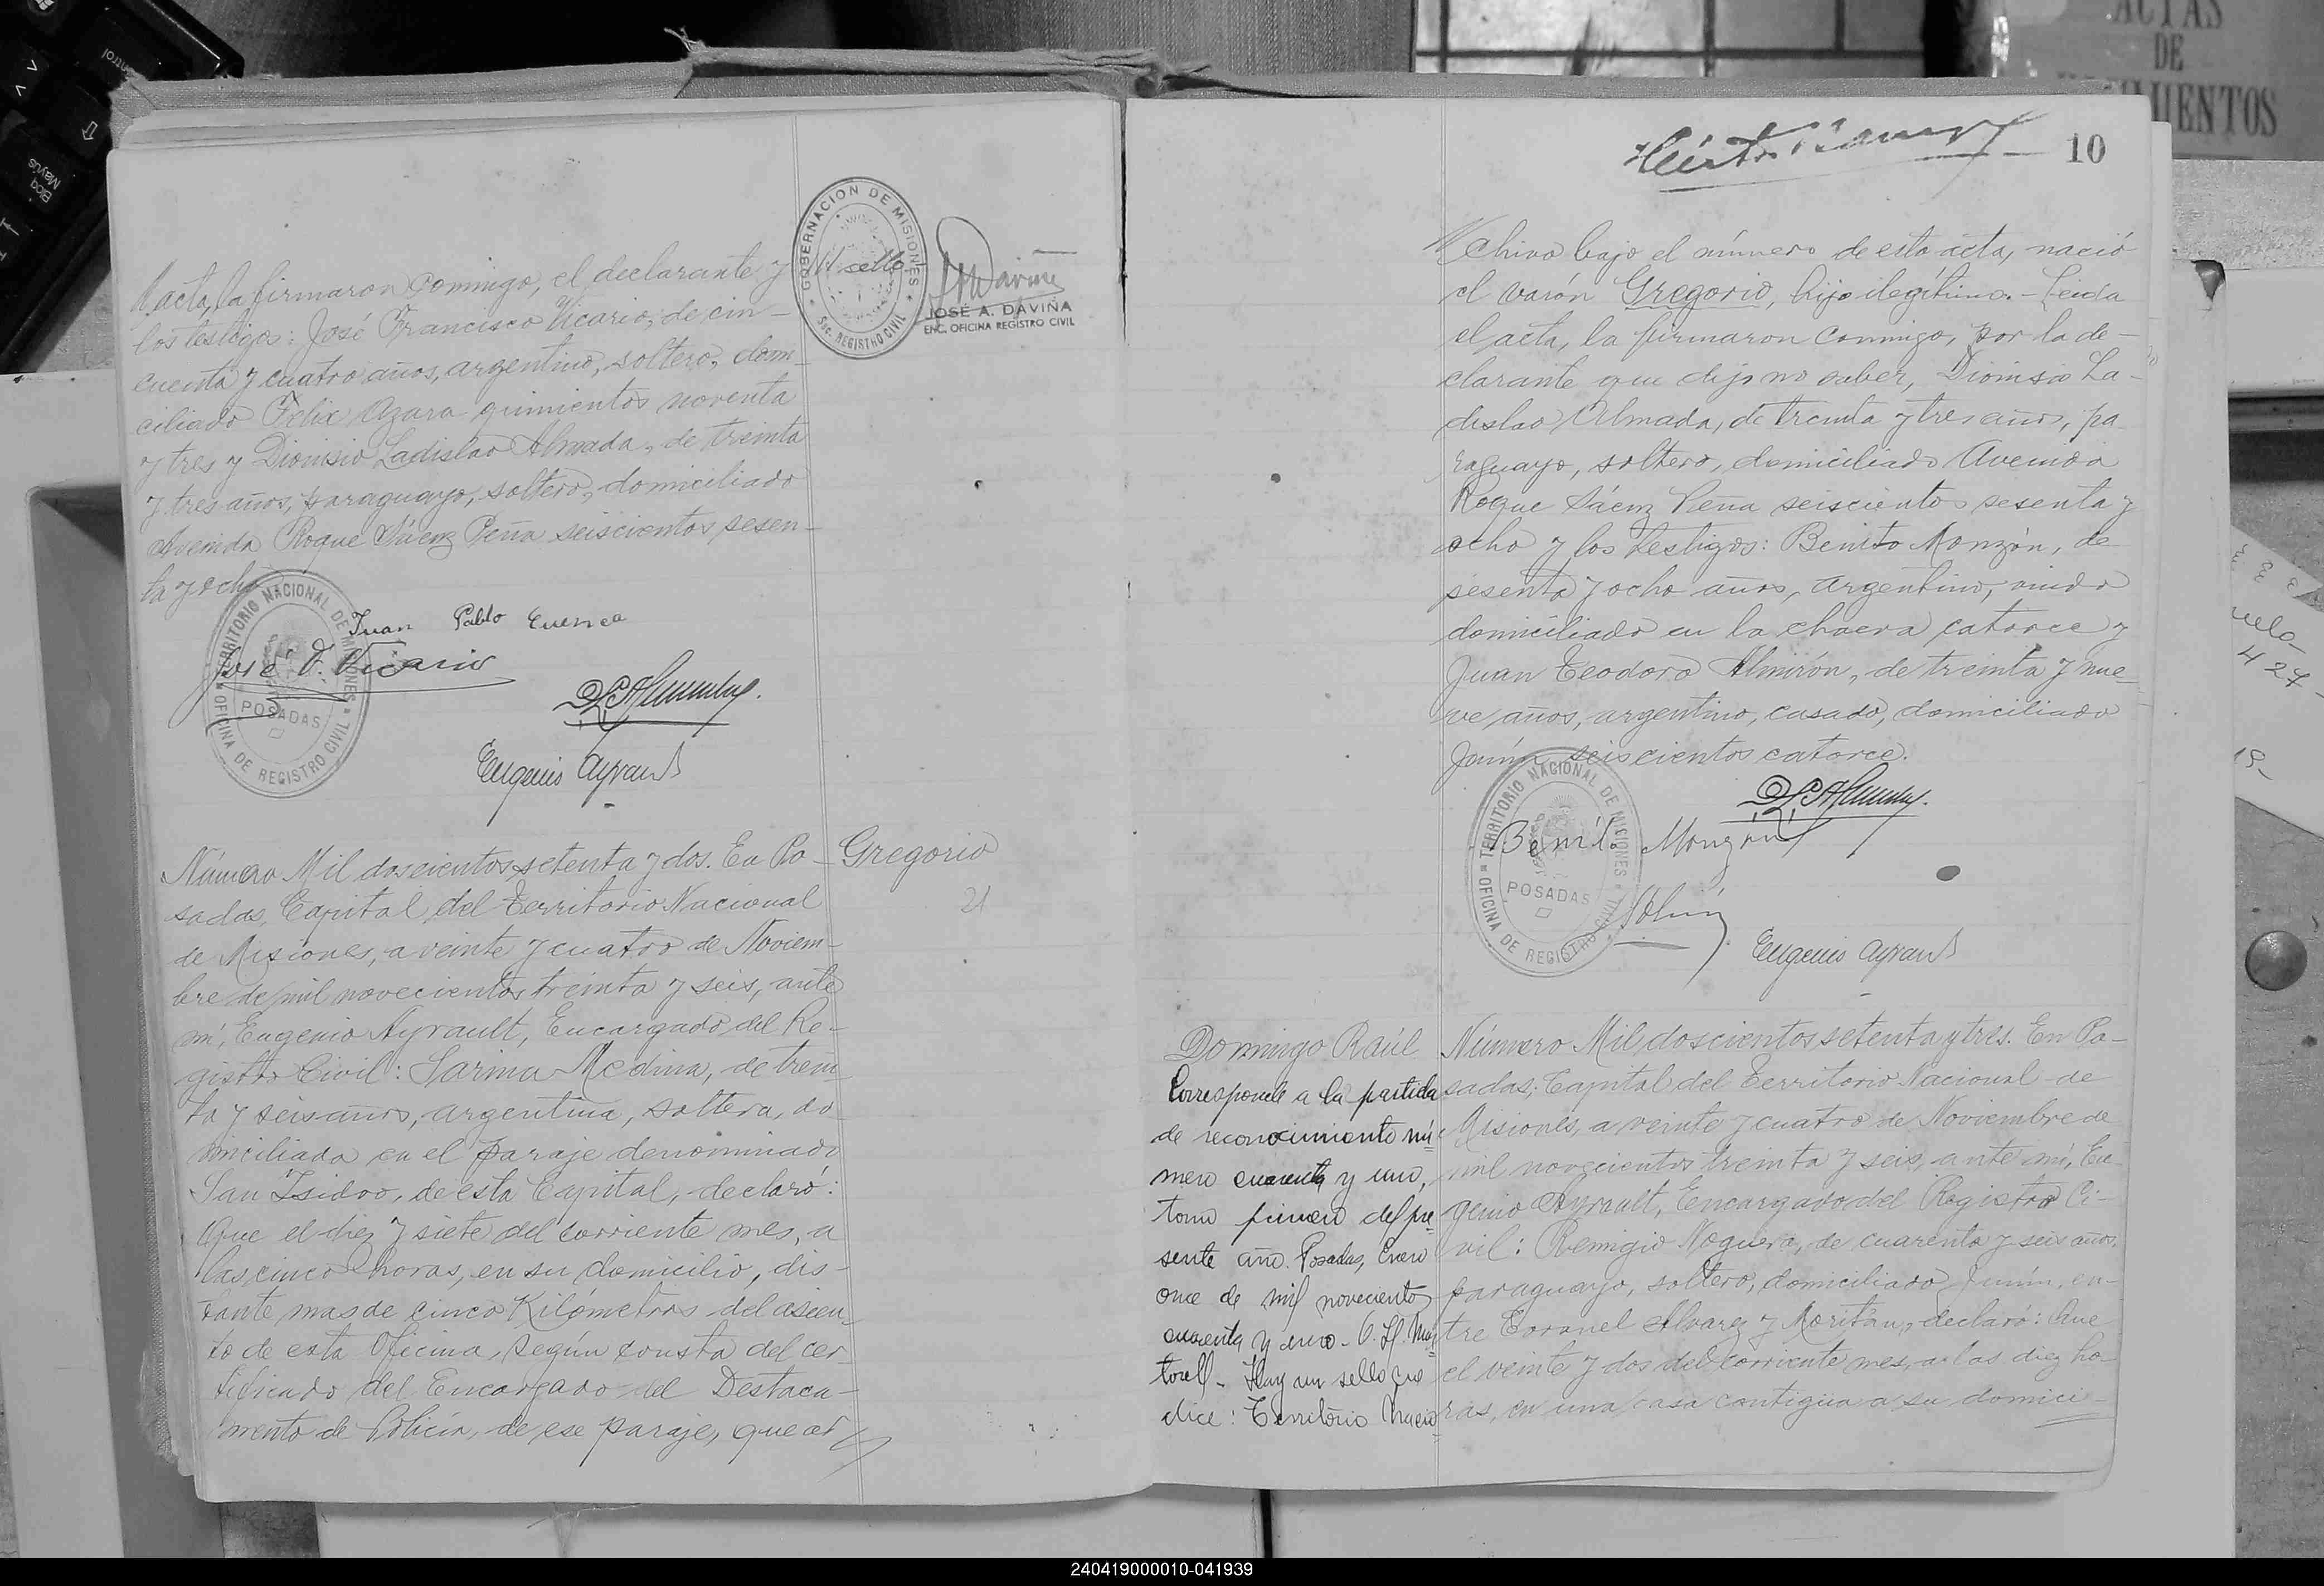 acta, la firmaron conmigo, el declarante y
los testigos: José Francisco Vicario, de cin-
cuenta y cuatro años, argentino, soltero, dom-
ciliado Felix Azara quinientos noventa
y tres y Dionisio Ladislao Almada, de treinta
y tres años, paraguayo, soltero, domiciliado
Avenida Roque Sáenz Peña seiscientos sesen-
ta y ocho
GOBERNACION DE MISIONES
Sec. REGISTRO CIVIL
JOSÉ A. DAVIÑA
ENC. OFICINA REGISTRO CIVIL
TERRITORIO NACIONAL DE MISIONES
POSADAS
OFICINA DE REGISTRO CIVIL
Juan Pablo Cuenca
José F. Vicario
Eugenio Ayrault
Gregorio
21
Número Mil doscientos setenta y dos. En Po-
sadas, Capital del Territorio Nacional
de Misiones, a veinte y cuatro de Noviem-
bre de mil novecientos treinta y seis, ante
mí, Eugenio Ayrault, Encargado del Re-
gistro Civil: Sarina Medina, de trein-
ta y seis años, argentina, soltera, do-
miciliada en el paraje denominado
San Isidro, de esta Capital, declaró:
Que el diez y siete del corriente mes, a
las cinco horas, en su domicilio, dis-
tante mas de cinco Kilómetros del asien-
to de esta Oficina, según consta del cer-
tificado del Encargado del Destaca-
mento de Policía, de ese paraje, que ar
10
chivo bajo el número de esta acta, nació
el varón Gregorio, hijo ilegítimo.- Leida
el acta, la firmaron conmigo, por la de-
clarante que dijo no saber, Dionisio La-
dislao Almada, de treinta y tres años, pa
raguayo, soltero, domiciliado Avenida
Roque Sáenz Peña seiscientos sesenta y
ocho y los testigos: Benito Monzón, de
sesenta y ocho años, argentino, viudo
domiciliado en la chacra catorce y
Juan Teodoro Almirón, de treinta y nue-
ve años, argentino, casado, domiciliado
Junín seiscientos catorce.
TERRITORIO NACIONAL DE MISIONES
POSADAS
OFICINA DE REGISTRO CIVIL
Benito Monzón
Eugenio Ayrault
Domingo Raúl
Corresponde a la partida
de reconocimiento nú-
mero cuarenta y uno,
tomo primero del pre-
sente año. Posadas, Enero
once de mil novecientos
cuarenta y uno-
torell- Hay un sello que
dice: Territorio Nacio-
Número Mil doscientos setenta y tres. En Po-
sadas, Capital del Territorio Nacional de
Misiones, a veinte y cuatro de Noviembre de
mil novecientos treinta y seis, ante mí, Eu-
genio Ayrault, Encargado del Registro Ci-
vil: Remigio Noguera, de cuarenta y seis años,
paraguayo, soltero, domiciliado Junín, en-
tre Coronel Alvarez y Moritán, declaró: Que
el veinte y dos del corriente mes, a las diez ho-
ras, en una casa contigua a su domici-
ACTAS
DE
427
240419000010-041939